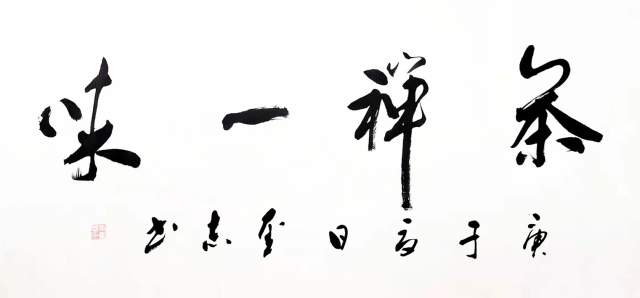 茶禅一味
庚子夏日金志书